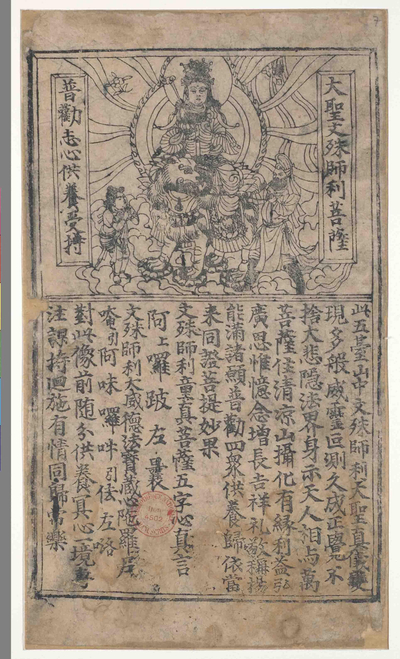 大聖文殊師利菩薩
普勸志心供養受持
此五臺山中文殊師利大聖真儀變
現多般威靈叵測久成正覺不
捨大悲隱法界身示天人相與萬
菩薩住清涼山攝化有緣利益弘
廣思惟憶念增長吉祥禮敬稱揚
能滿諸願普勸四衆供養歸依當
來同證菩提妙果
文殊師利童真菩薩五字心真言
阿上囉跛左曩
文殊師利大威德法寶藏心陀羅尼
唵引阿味囉吽引佉左洛
對此像前隨分供養冥心一境專
注課持迴施有情同歸常樂